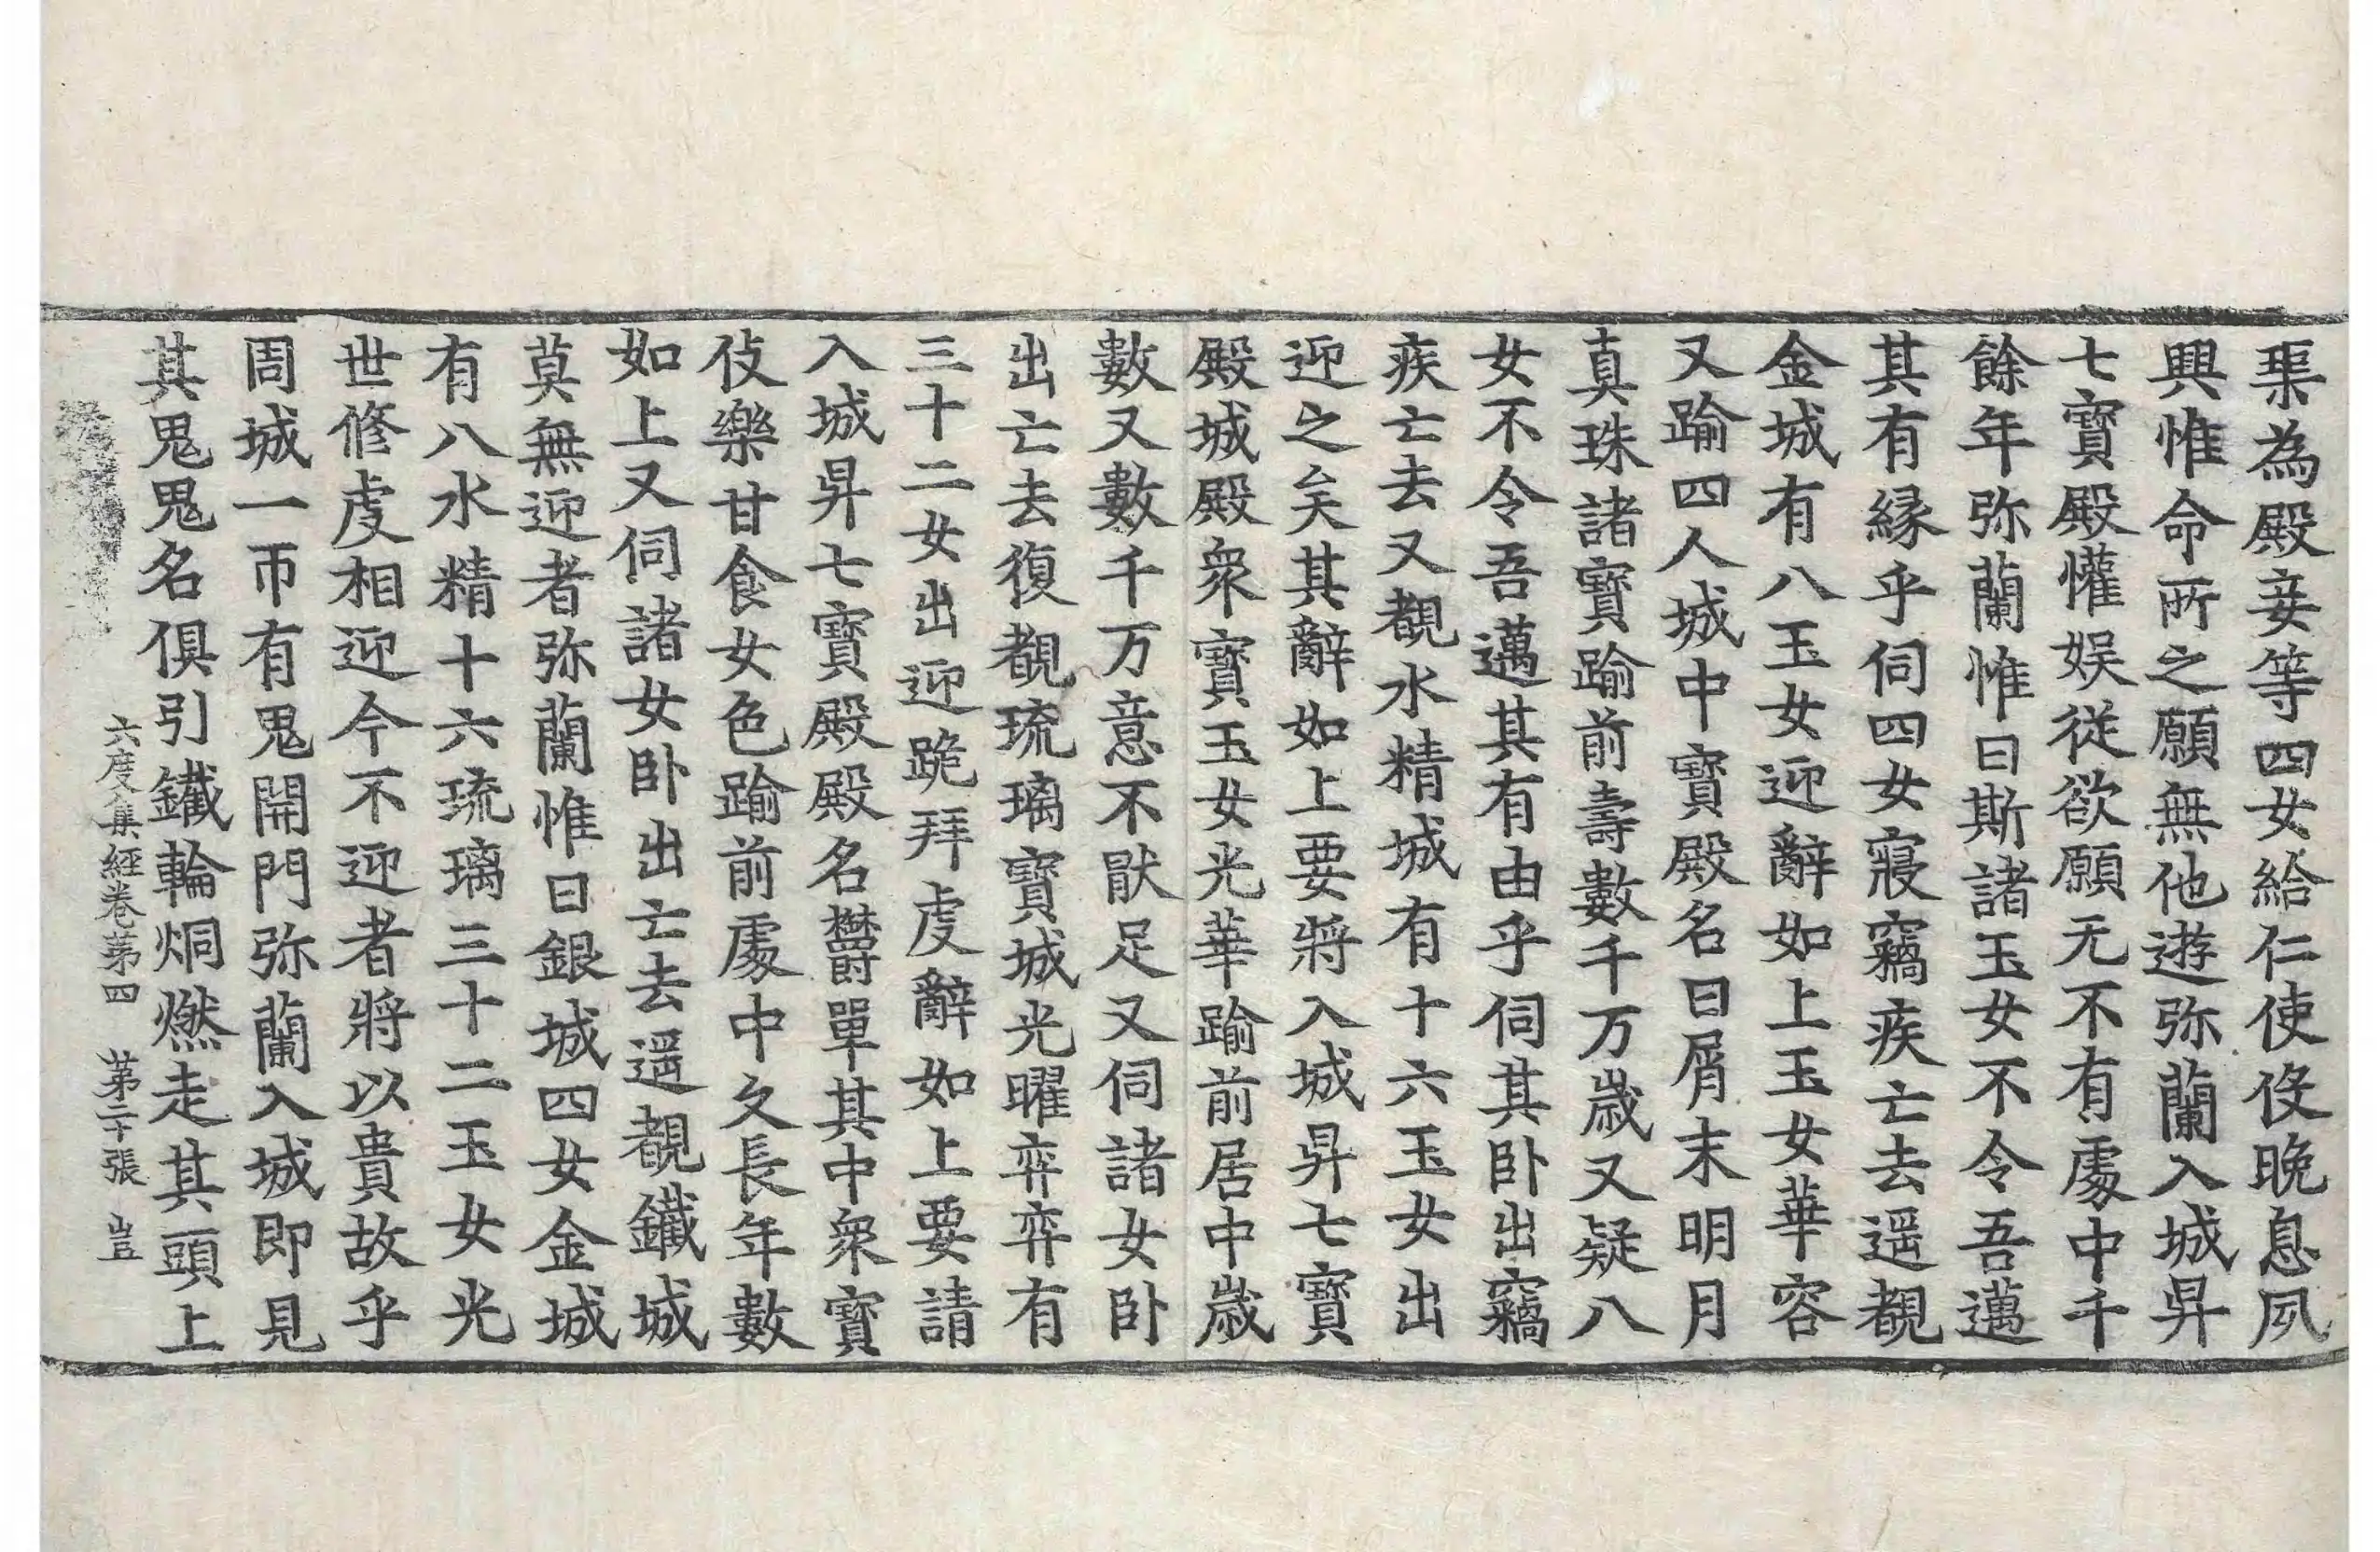 渠為殿妾等四女給仁使伇晚息夙
興惟命所之願無他遊弥蘭入城昇
七寶殿懽娱從欲願无不有處中千
餘年弥蘭惟曰斯諸玉女不令吾邁
其有緣乎伺四女寢竊疾亡去遥覩
金城有八玉女迎辭如上玉女華容
又踰四人城中寶殿名曰屑末明月
真珠諸寶踰前壽數千万歲又疑八
女不令吾邁其有由乎伺其卧出竊
疾亡去又覩水精城有十六玉女出
迎之矣其辭如上要將入城昇七寶
殿城殿衆寶玉女光華踰前居中歲
數又數千万意不猒足又伺諸女卧
出亡去復覩琉璃寶城光曜弈弈有
三十二女出迎跪拜虔辭如上要請
入城昇七寶殿殿名欝單其中衆寶
伎樂甘食女色踰前處中久長年數
如上又伺諸女卧出亡去遥覩鐵城
莫無迎者弥蘭惟曰銀城四女金城
有八水精十六琉璃三十二玉女光
世修虔相迎今不迎者將以貴故乎
周城一帀有鬼開門弥蘭入城即見
其鬼鬼名俱引鐵輪烔燃走其頭上
六度集經卷苐四　苐二十張　豈